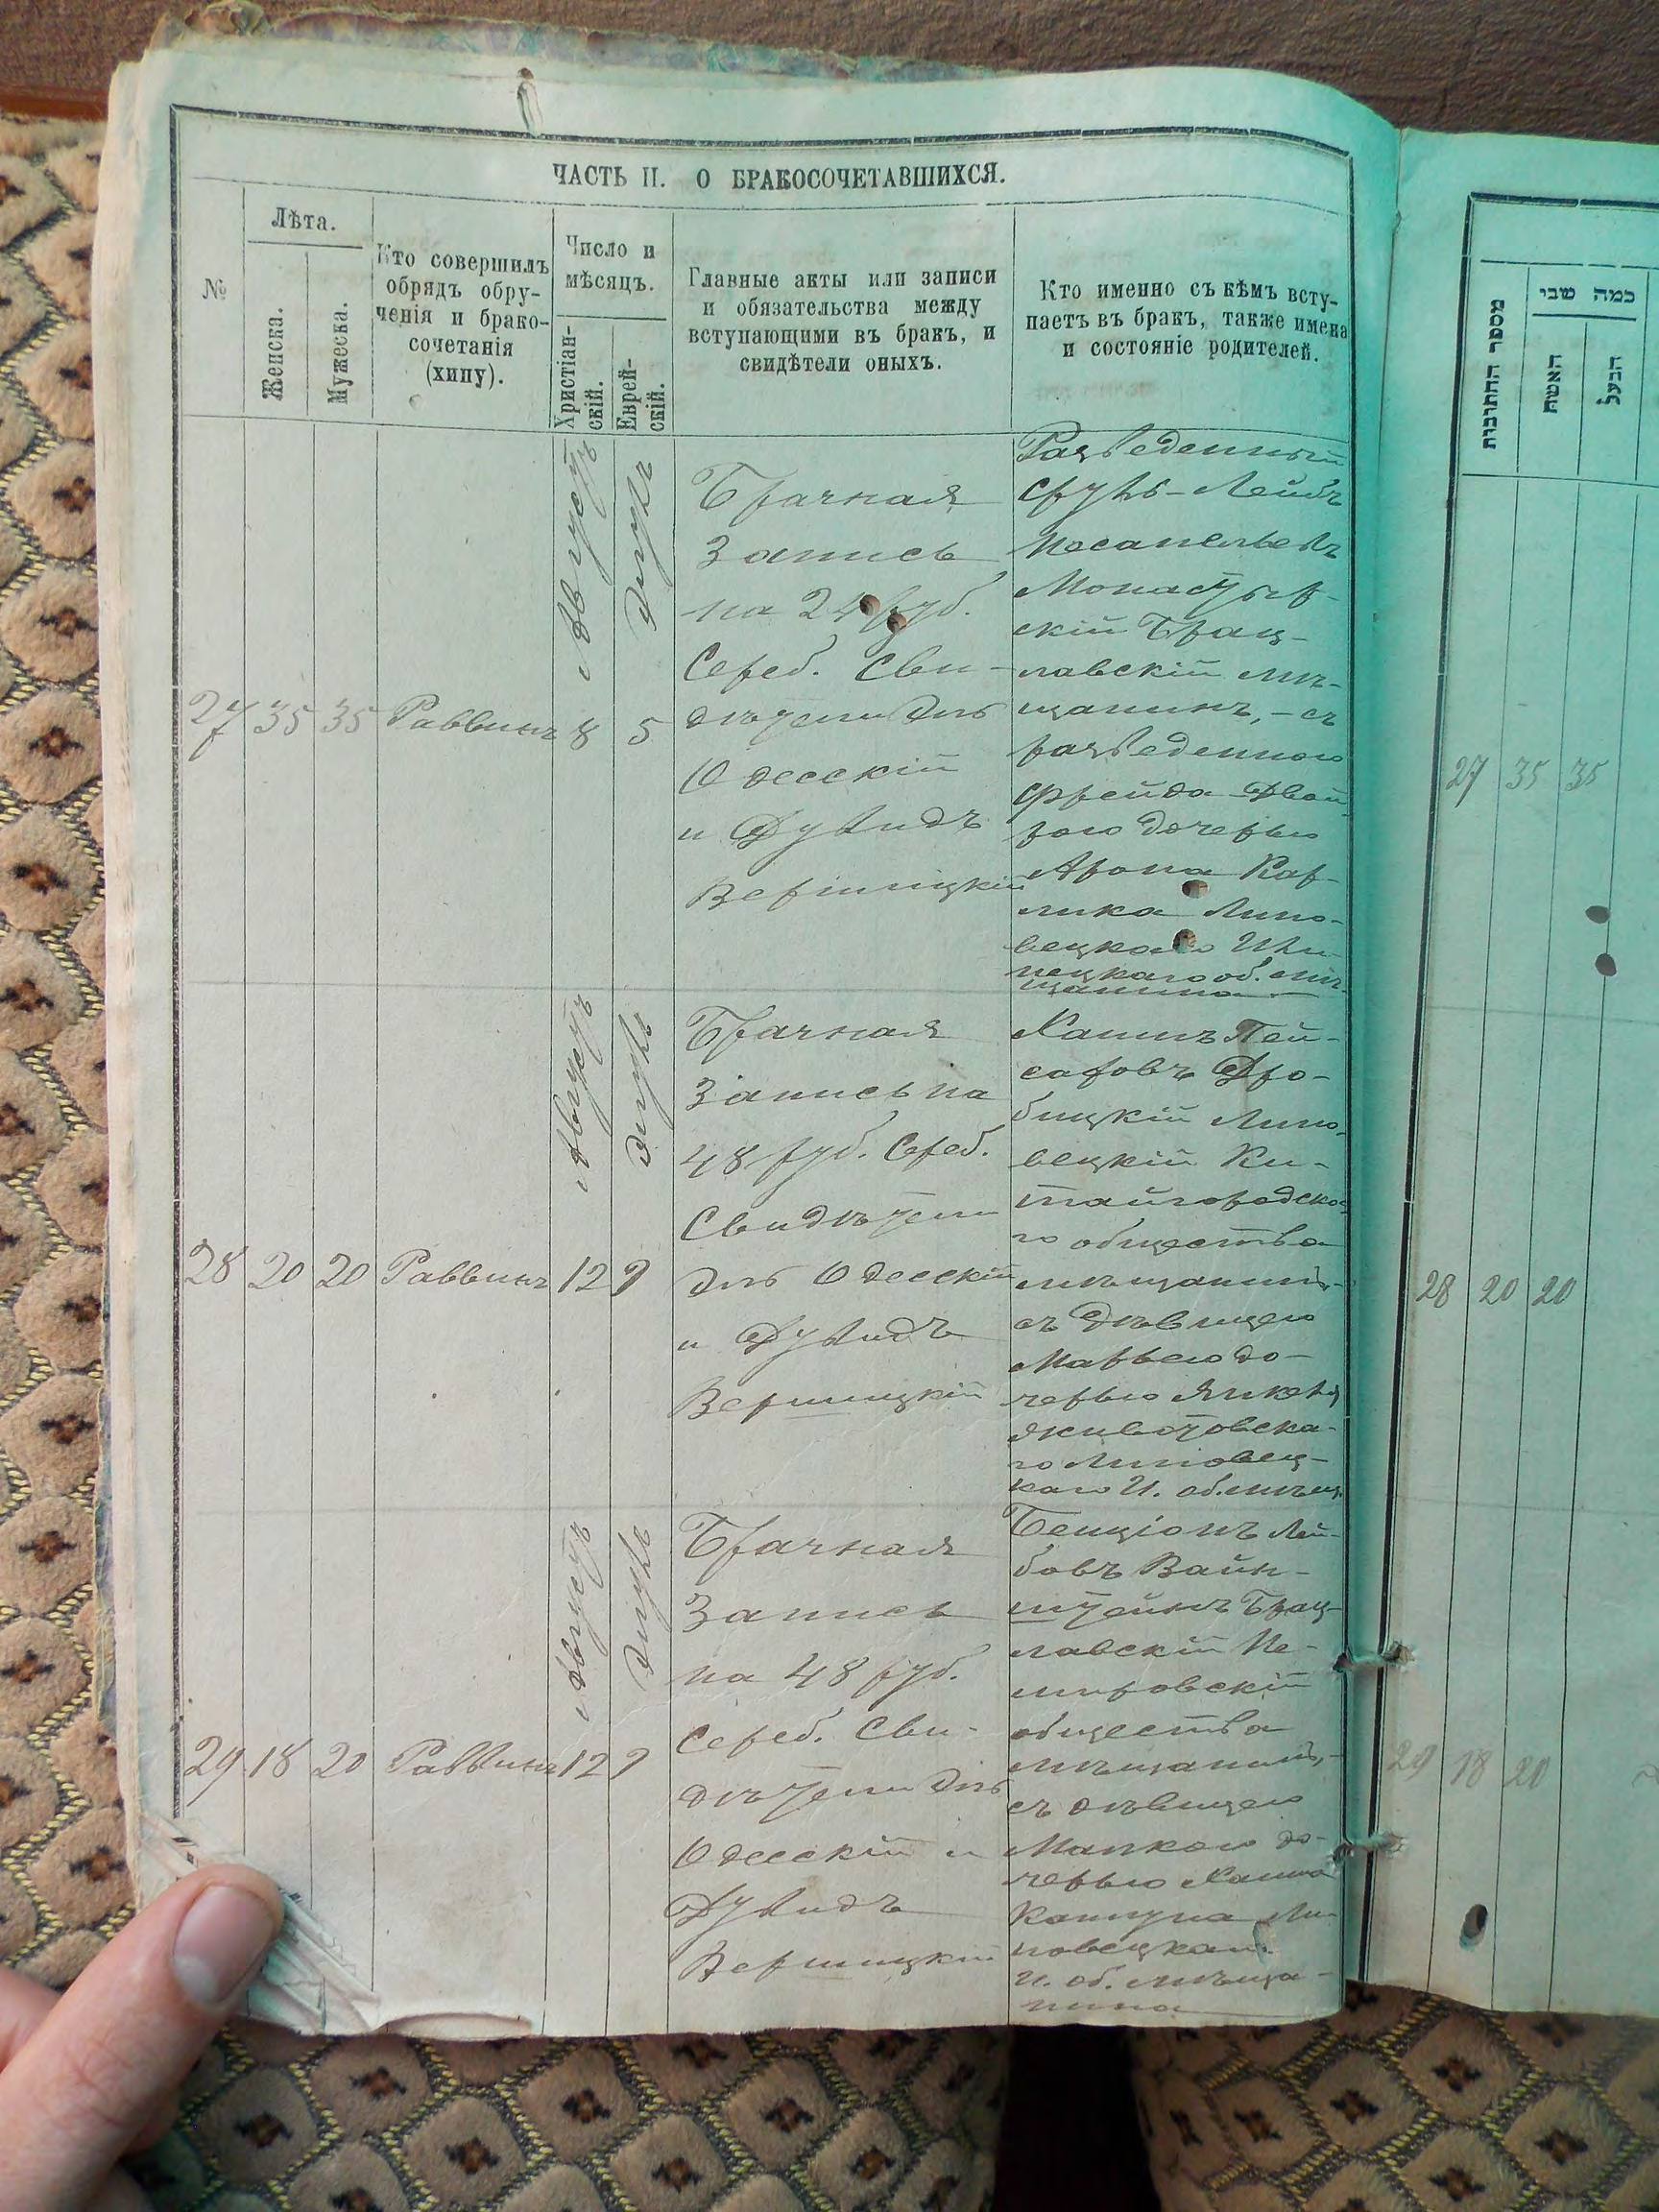 ЧАСТЬ II. О БРАКОСОЧЕТАВШИХСЯ.
№
Лѣта.
Женска.
Мужеска.
Кто совершилъ
обрядъ обру-
ченія и брако-
сочетанія
(хипу).
Число и
мѣсяцъ.
Христіан-
скій.
Еврей-
скій.
Главные акты или записи
и обязательства между
вступающими въ бракъ, и
свидѣтели оныхъ.
Кто именно съ кѣмъ всту-
паетъ въ бракъ, также имена
и состояніе родителей.
27
35
35
Раввинъ
Августъ
8
5
Брачная
Запись
на 24 руб.
Сереб. Сви-
дѣтели
Одесскій
и Дувидъ
Разведенный
Сруль-Лейбъ
Монастыр-
скій Брац-
лавскій мѣ-
щанинъ, - съ
разведенною
Фрейда Двой
рою дочерью
Арона
Липо-
вецкаго Или-
нецкаго об. мѣ-
щанина
28
20
20
Раввинъ
Августъ
12
9
Брачная
Запись на
48 руб. Сереб.
Свидѣтели
Одесскій
и Дувидъ
Вершицкій
Хаимъ Пей-
саховъ Дро-
бицкій Липо-
вецкій Ки-
тайгородска
го общества
мѣщанинъ,-
съ дѣвицею
Марьею до-
черью Янкеля
Животовска-
го Липовец-
каго И. об. мѣщ.
29
18
20
Раввинъ
Августъ
12
9
Брачная
Запись
на 48 руб.
Сереб. Сви-
дѣтели
Одесскій и
Дувидъ
Вершицкій
Бенціонъ Лей-
бовъ Вайн-
штейнъ Брац-
лавскій Не-
мировскій
общества
мѣщанинъ,-
съ дѣвицею
Манкою до-
черью Хаима
Капцуна Ли-
повецкаго
И. об. мѣща-
нина
מספר החתונות
כמה שני
האשה
הבעל
27
35
35
28
20
20
29
18
20